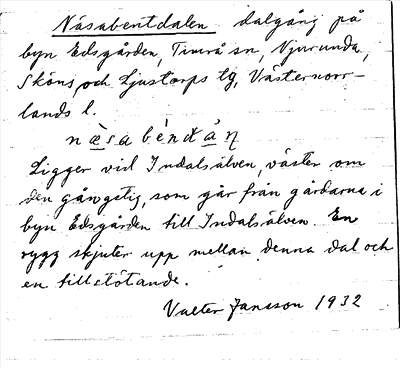 Näsabentdalen dalgång på
byn Edsgården, Timrå sn, Njurunda,
Sköns och Ljustorps tg, Västernorr-
lands l.
næsabèndtán
Ligger vid Indalsälven, väster om
den gångstig, som går från gårdarna i
byn Edsgården till Indalsälven. En
rygg skjuter upp mellan denna dal och
en tillstötande.
Valter Jansson 1932